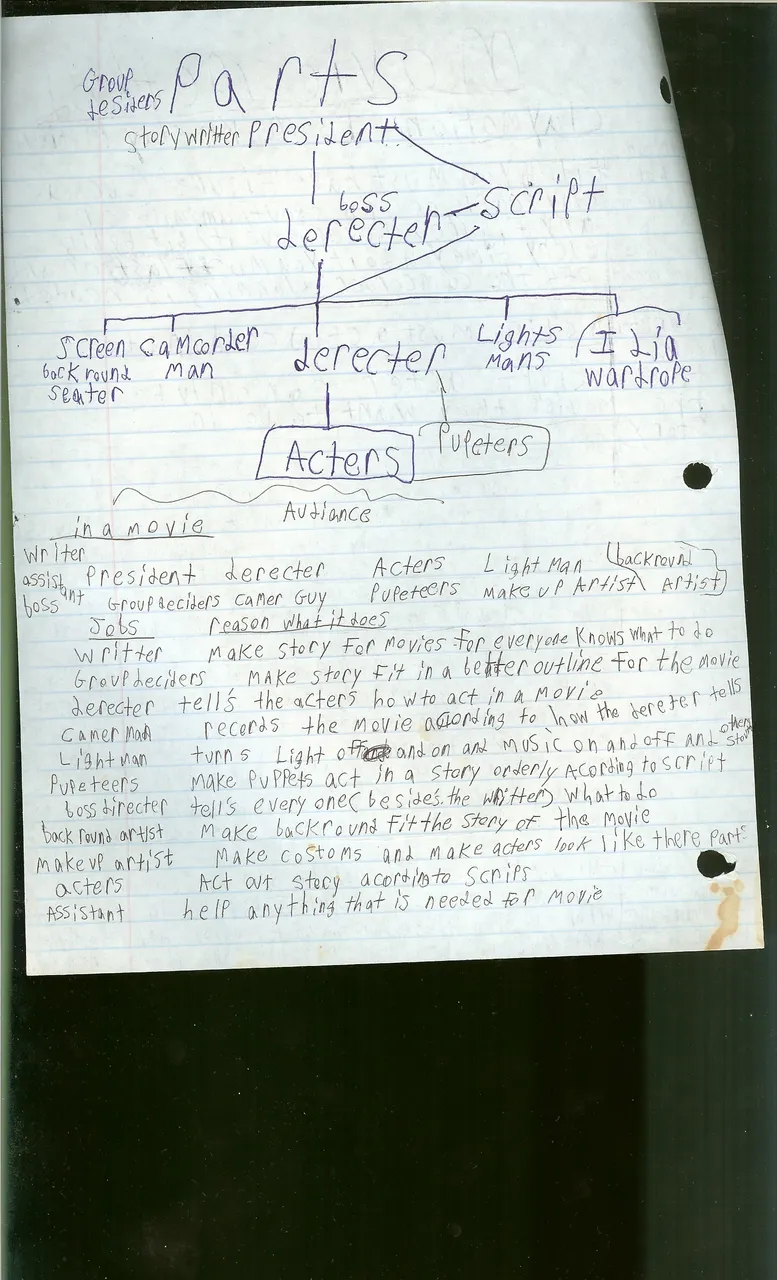 Group
desiders Parts
story writter President
boss
derecter
script
Screen camcorder derecter Lights I Lia
back round man mans wardrope
seater
Acters Pupeters
Audiance
in a movie
writer
assistant President derecter Acters Light Man (backround
boss Groupdeciders camer Guy Pupeteers make up Artist Artist)
Jobs reason what it does
writter make story for movies for everyone knows what to do
Groupdeciders make story fit in a better outline for the movie
derecter tell's the acters how to act in a movie
camer man records the movie acording to how the derecter tells
Light man turns Light off and on and music on and off and others
Pupeteers make puppets act in a story orderly Acording to script
boss directer tell's every one (besides the writter) what to do
back round artist make backround fit the story of the movie
make up artist make costoms and make acters look like there part
acters Act out story acording to scrips
Assistant help anything that is needed for movie